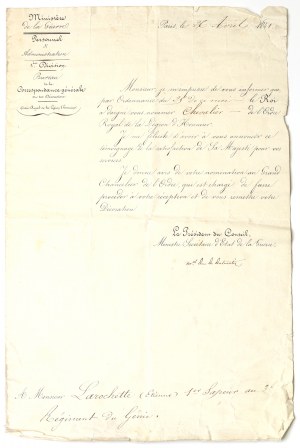 Ministère
De la Guerre.
Personnel
&
Administration
Division
Bureau
de la
Correspondance générale
Paris, le Avril
Monsieur, je m'empresse de vous informer que
par Ordonnance du de ce mois, le Roi
a daigné vous nommer Chevalier de l'Ordre
Royal de la Légion d'Honneur.
Je d'avoir à vous annoncer ce
témoignage de la satisfaction de Sa Majesté pour vos
services.
Je donne avis de votre nomination au Grand
Chancelier de l'Ordre, qui est chargé de faire
procéder à votre réception et de vous remettre votre
Décoration.
Le Président du Conseil,
Ministre Secrétaire d'Etat de la Guerre
A Monsieur Larochette (Etienne) 1er Sapeur au 2e
Régiment du Génie.